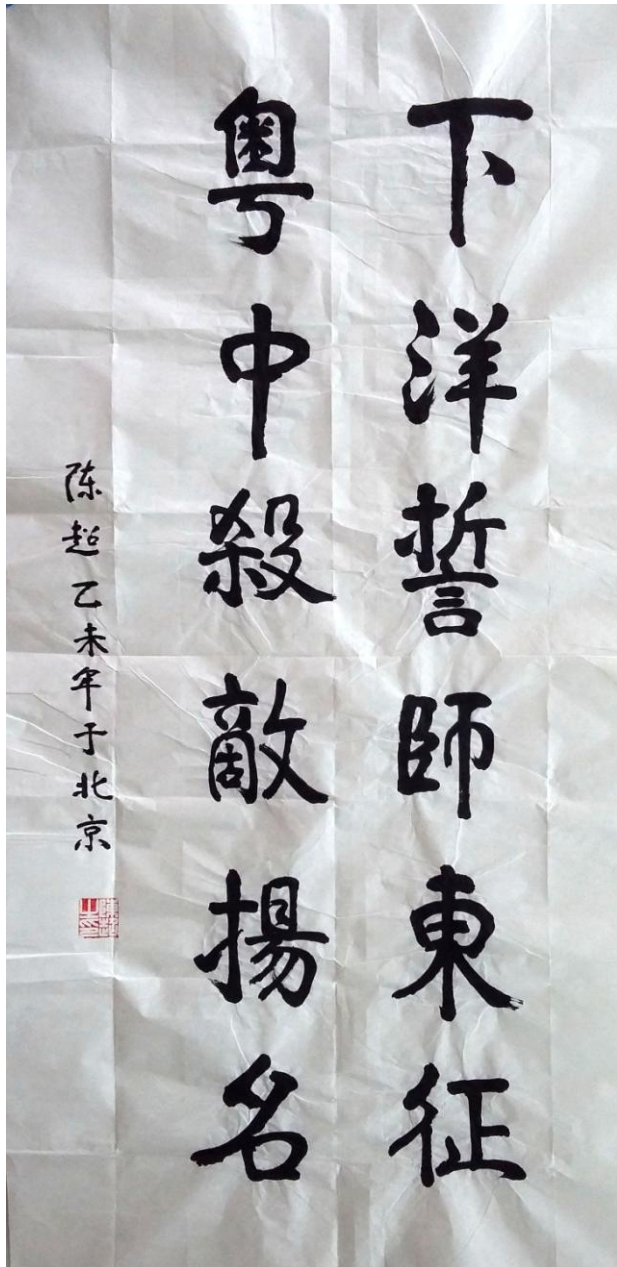 下洋誓師東征
粤中殺敵揚名
陈超乙未年于北京